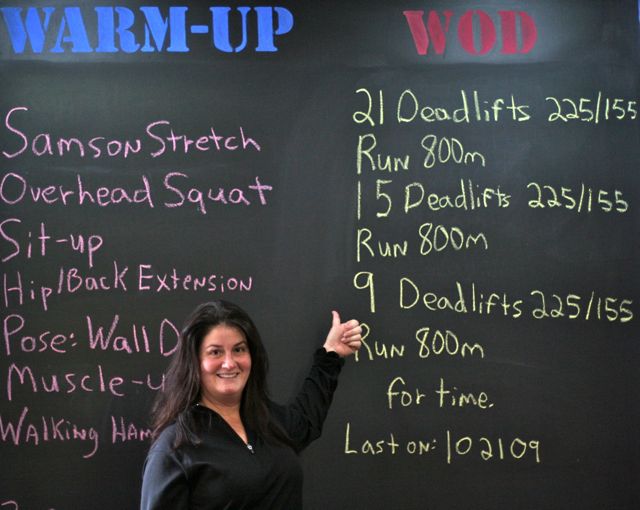 WARM-UP
Samson Stretch
Overhead Squat
Sit-up
Hip/Back Extension
Pose: Wall
Muscle-u
Walking
WOD
21 Deadlifts 225/155
Run 800m
15 Deadlifts 225/155
Run 800m
9 Deadlifts 225/155
Run 800m
for time.
Last on: 102109